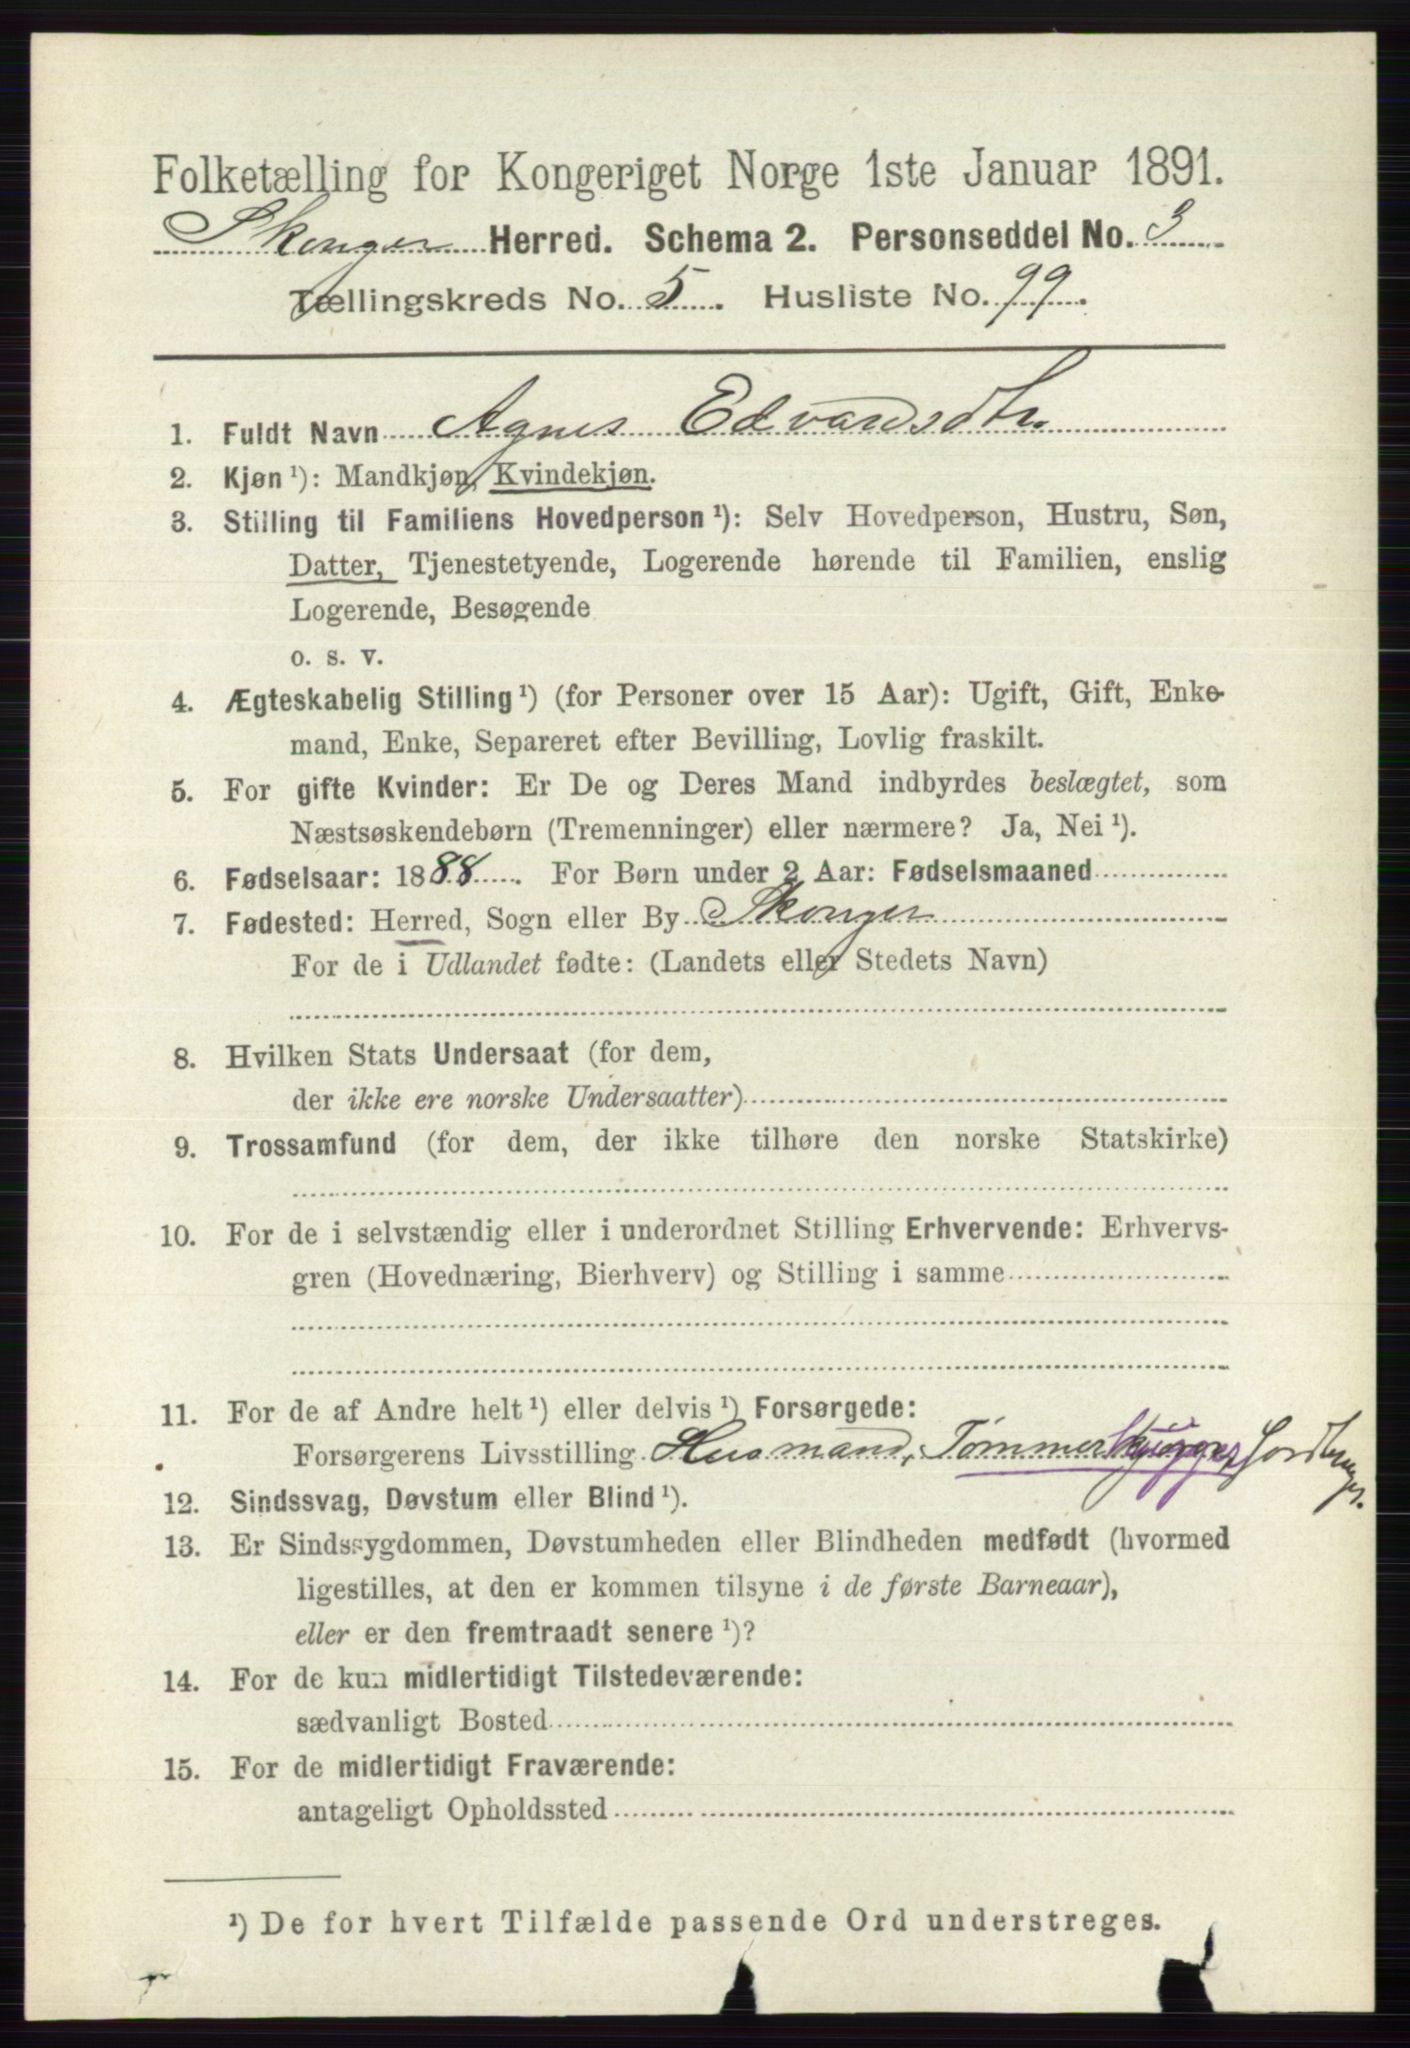 Folketælling for Kongeriget Norge 1ste Januar 1891.
Skouger Herred. Schema 2. Personseddel No. 3
Tællingskreds No. 5. Husliste No. 99.
1. Fuldt Navn Agnes Edvardsdtr.
2. Kjøn ¹): Mandkjøn, Kvindekjøn.
3. Stilling til Familiens Hovedperson ¹): Selv Hovedperson, Hustru, Søn,
Datter, Tjenestetyende, Logerende hørende til Familien, enslig
Logerende, Besøgende
o. s. v.
4. Ægteskabelig Stilling ¹) (for Personer over 15 Aar): Ugift, Gift, Enke-
mand, Enke, Separeret efter Bevilling, Lovlig fraskilt.
5. For gifte Kvinder: Er De og Deres Mand indbyrdes beslægtet, som
Næstsøskendebørn (Tremenninger) eller nærmere? Ja, Nei ¹).
6. Fødselsaar: 1888. For Børn under 2 Aar: Fødselsmaaned
7. Fødested: Herred, Sogn eller By Skouger
For de i Udlandet fødte: (Landets eller Stedets Navn)
8. Hvilken Stats Undersaat (for dem,
der ikke ere norske Undersaatter)
9. Trossamfund (for dem, der ikke tilhøre den norske Statskirke)
10. For de i selvstændig eller i underordnet Stilling Erhvervende: Erhvervs-
gren (Hovednæring, Bierhverv) og Stilling i samme
11. For de af Andre helt ¹) eller delvis ¹) Forsørgede:
Forsørgerens Livsstilling Husmand, Tømmerhugger, Jordbruger.
12. Sindssvag, Døvstum eller Blind ¹).
13. Er Sindssygdommen, Døvstumheden eller Blindheden medfødt (hvormed
ligestilles, at den er kommen tilsyne i de første Barneaar),
eller er den fremtraadt senere ¹)?
14. For de kun midlertidigt Tilstedeværende:
sædvanligt Bosted
15. For de midlertidigt Fraværende:
antageligt Opholdssted
¹) De for hvert Tilfælde passende Ord understreges.